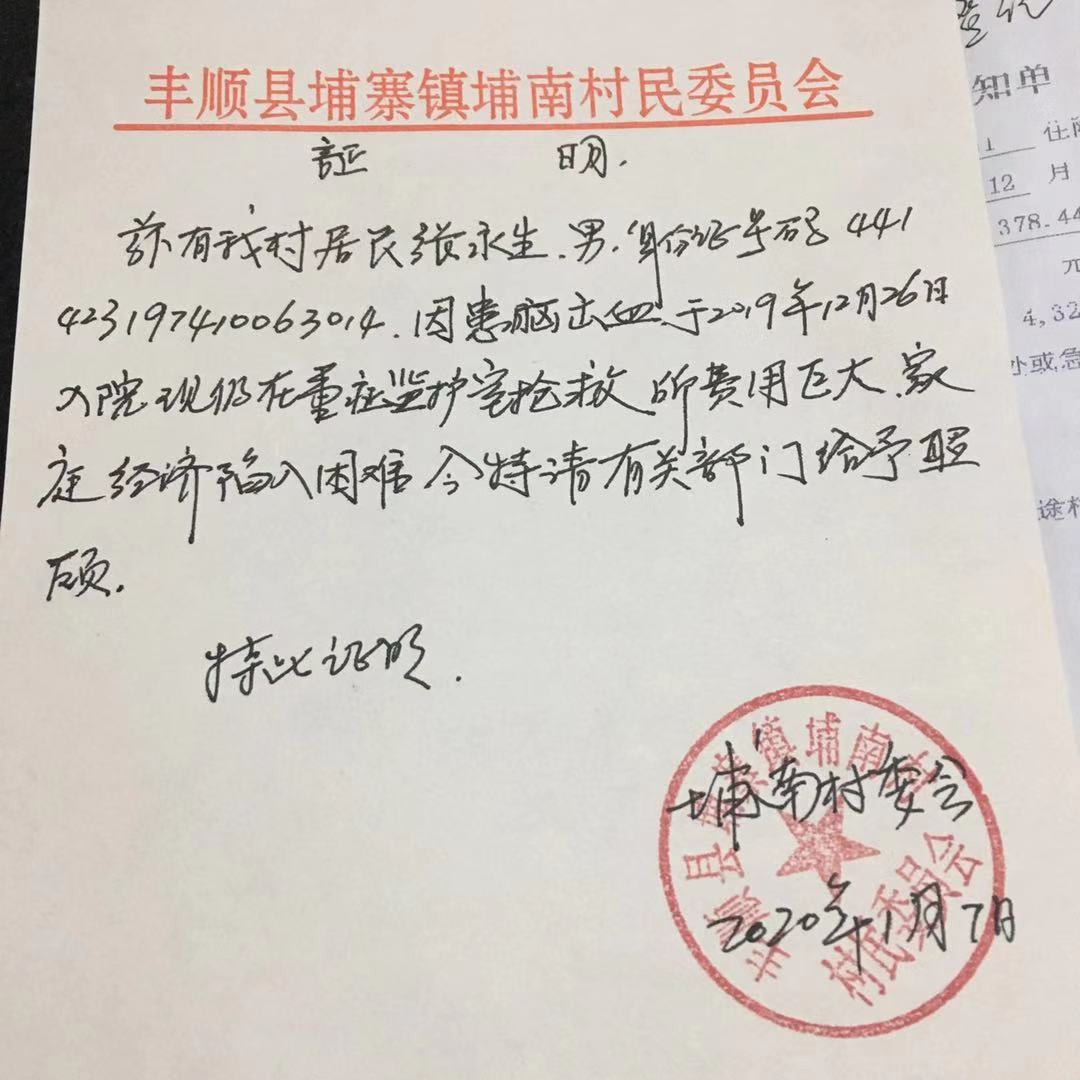 丰顺县埔寨镇埔南村民委员会
証 明.
兹有我村居民张永生.男.身份证号码441
423197410063014.因患脑出血.于2019年12月26日
入院现仍在重症监护室抢救所费用巨大.家
庭经济陷入困难今特请有关部门给予照
顾.
特此证明.
埔南村委会
2020年1月7日
丰顺县埔寨镇埔南村民委员会
知单
1
12 月
378.44
元
4,32
处或急